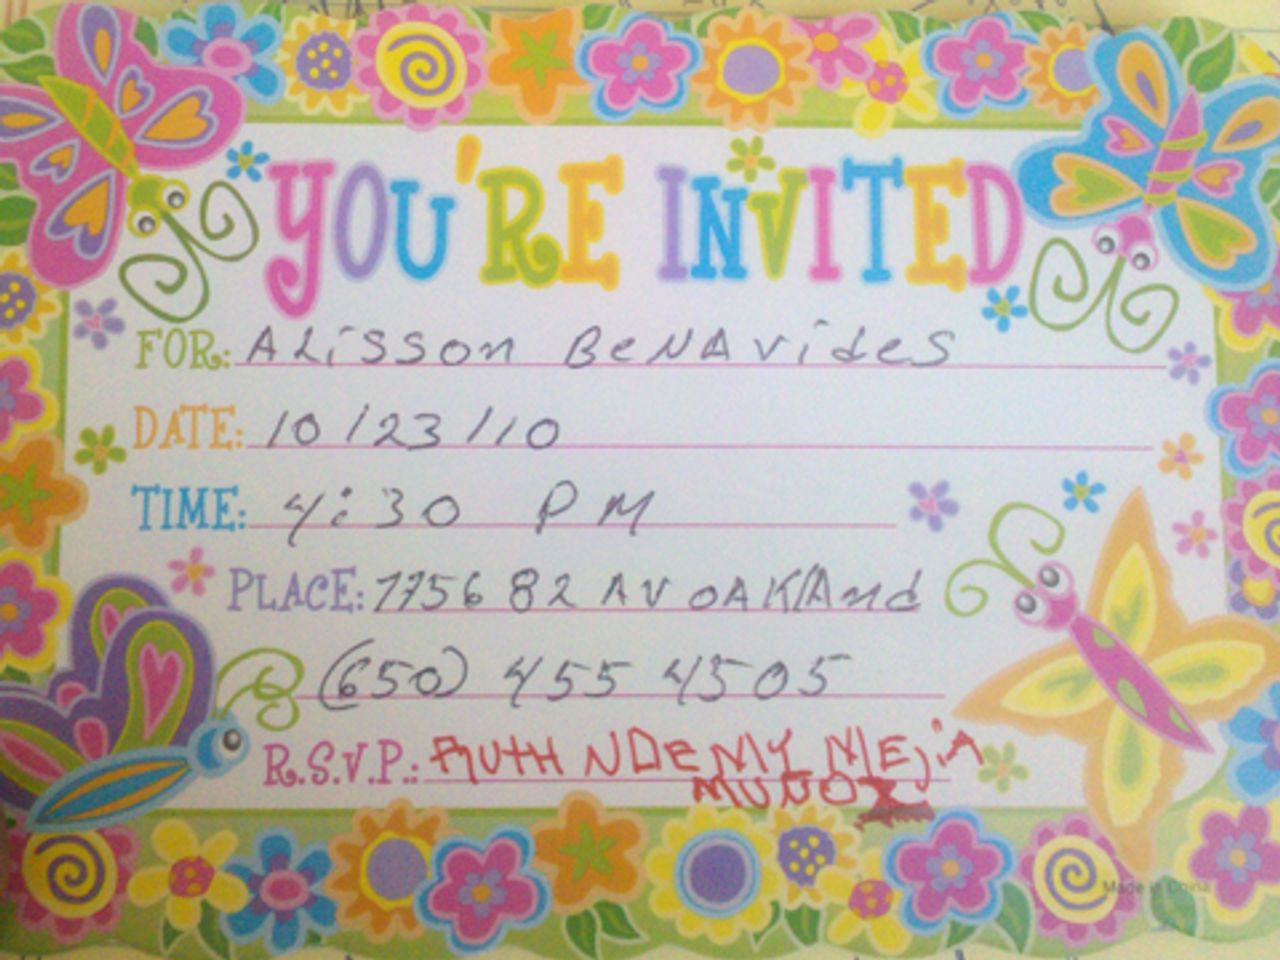 YOU'RE INVITED
FOR: ALiSSon BeNAvides
DATE: 10/23/10
TIME: 4:30 PM
PLACE: 1756 82 AV oAKlAnd
(650) 455 4505
R.S.V.P.: RUTH MEjiA
Made in China